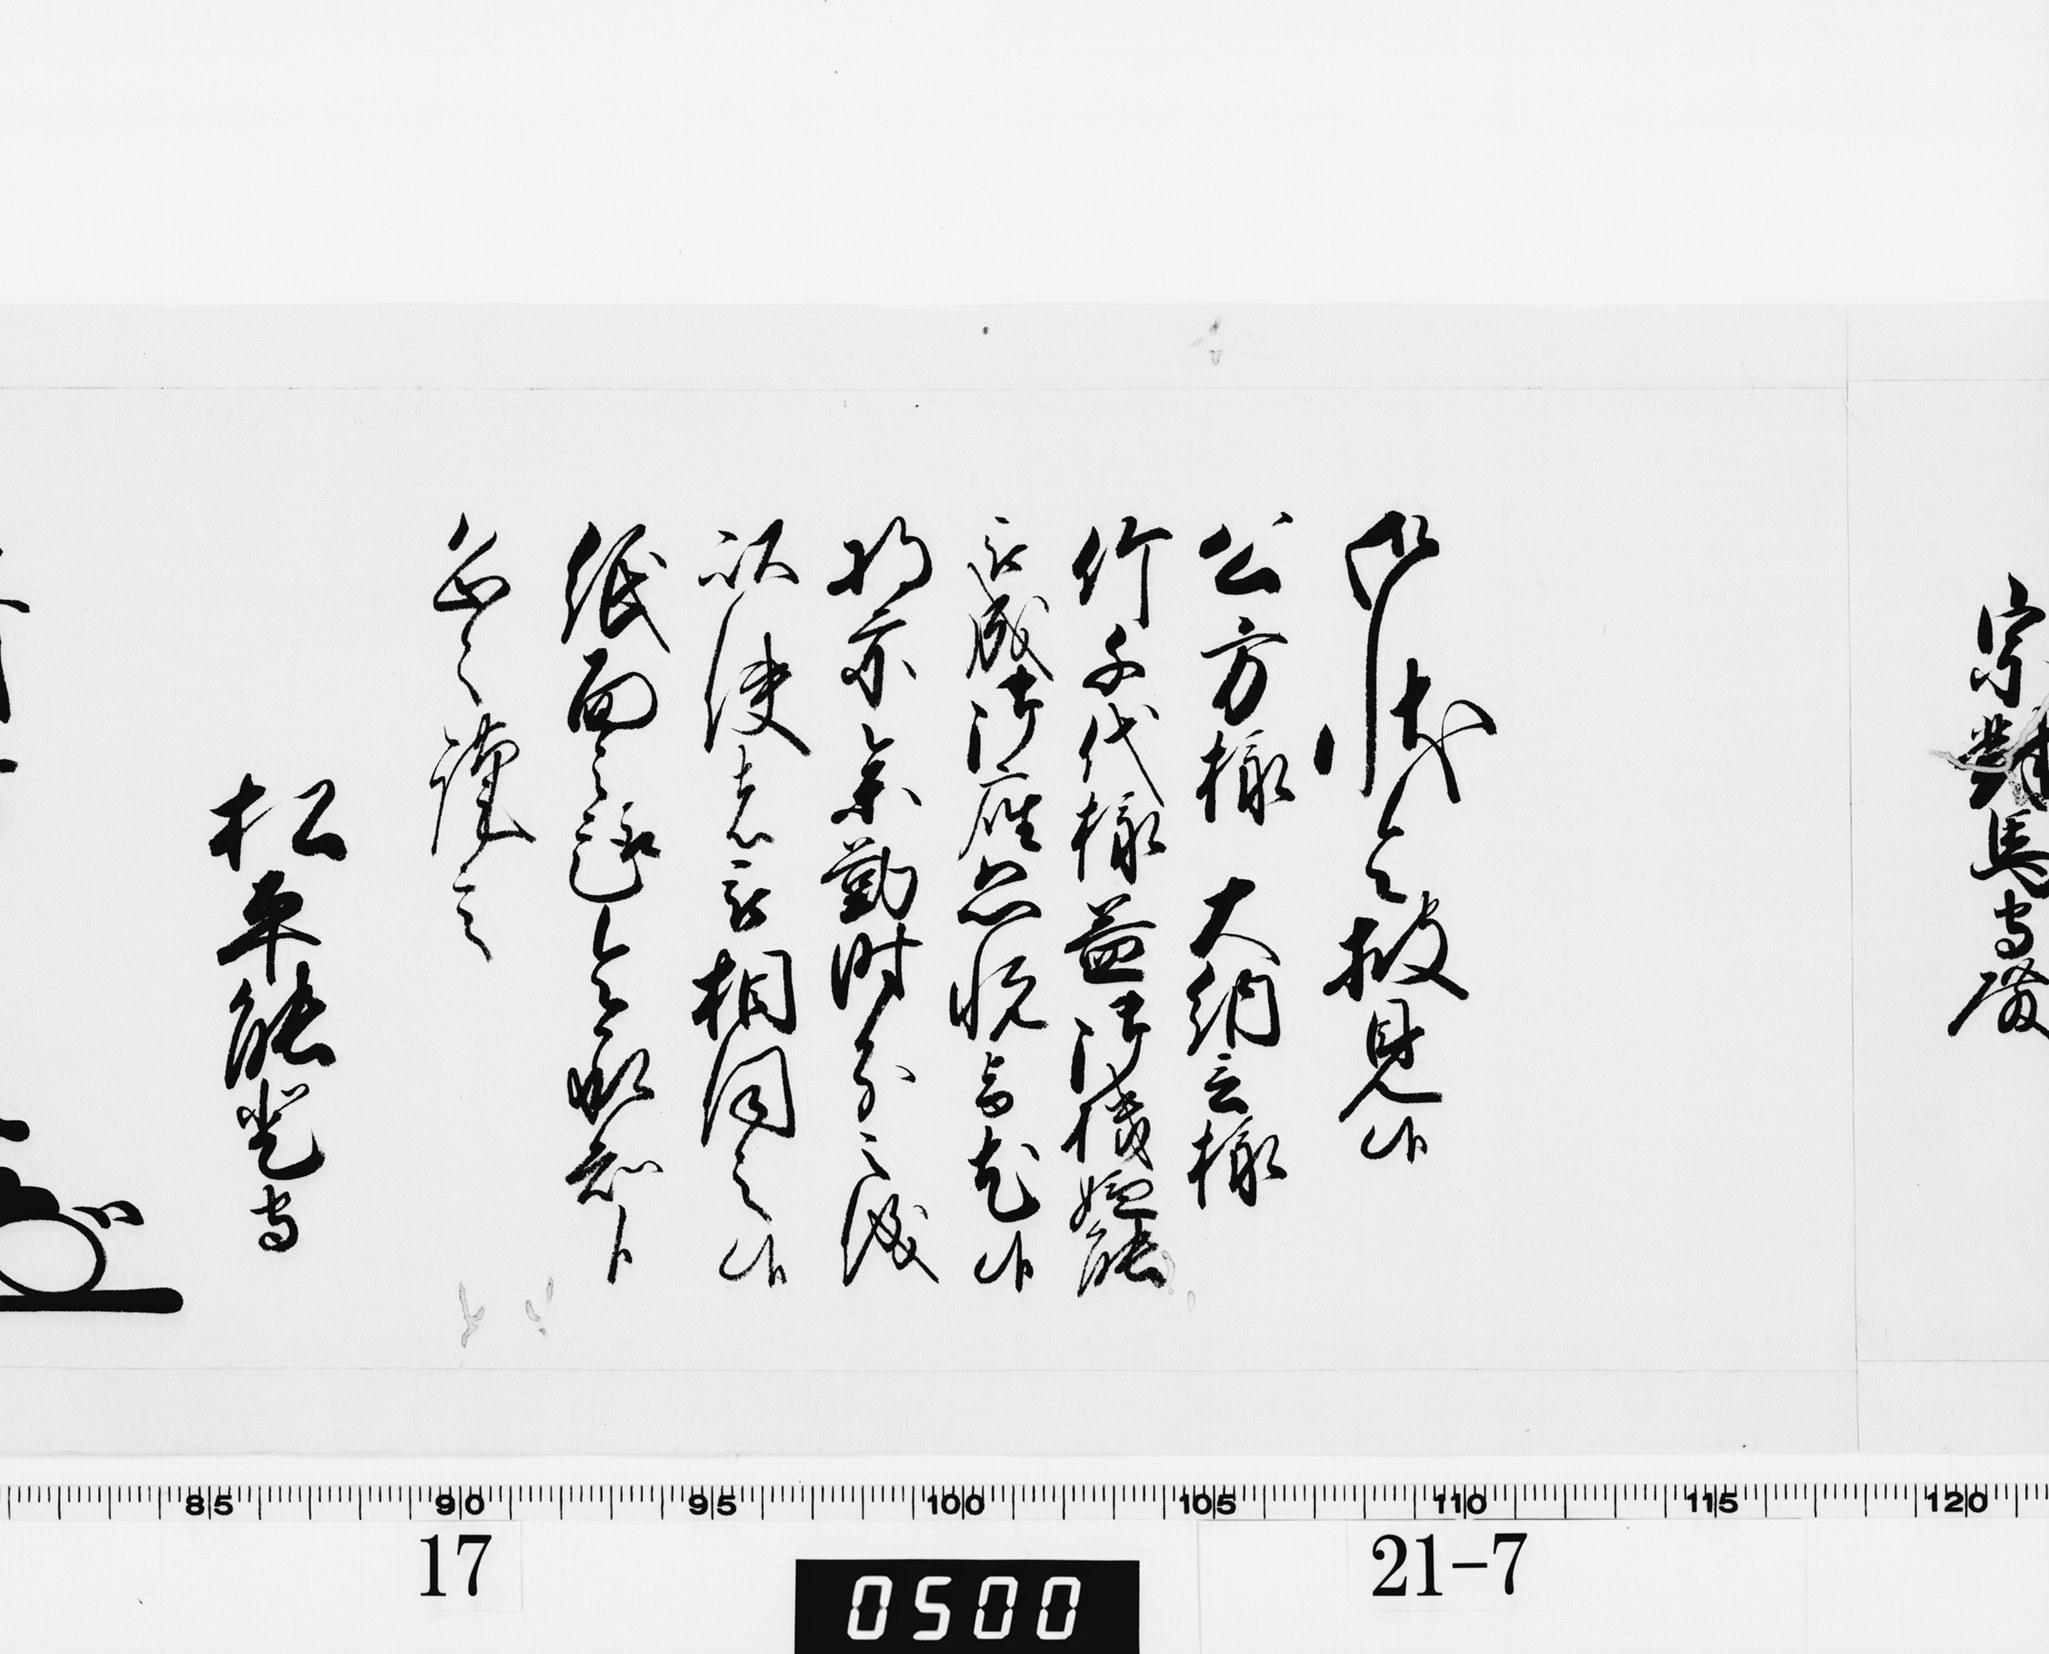 宗對馬守殿
御状令披見候
公方様 大納言様
竹千代様益御機嫌能
被成御座恐悦旨尤候
将亦参勤時分之儀
以使者被相伺之候
紙面之趣令承知候
恐々謹言
松平能登守
85 90 95 100 105 110 115 120
17
21-7
0500